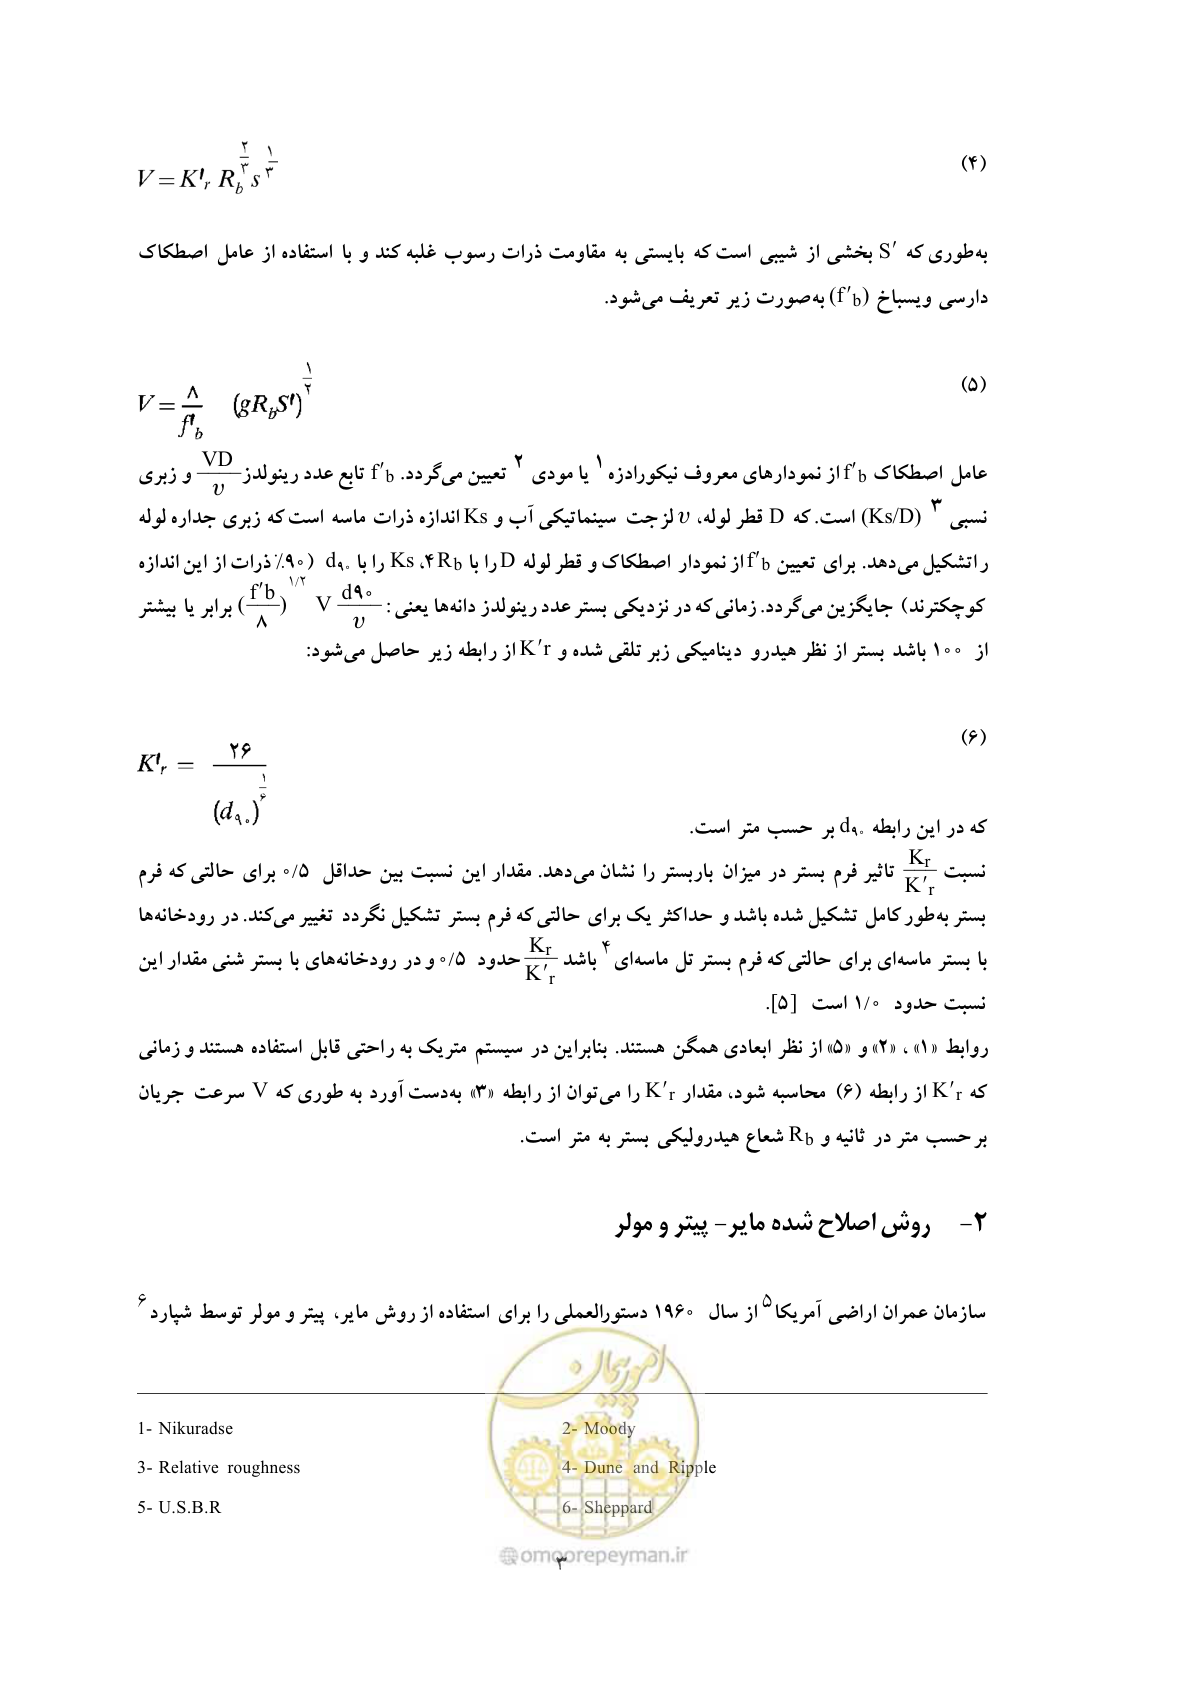 (۴) V = K'r Rb^(۲/۳) s^(۱/۳)
به‌طوری که S′ بخشی از شیبی است که بایستی به مقاومت ذرات رسوب غلبه کند و با استفاده از عامل اصطکاک
دارسی ویسباخ (f′b) به‌صورت زیر تعریف می‌شود.
(۵) V = ۸/f'b (gRbS')^(۱/۲)
عامل اصطکاک f′b از نمودارهای معروف نیکورادزه ۱ یا مودی ۲ تعیین می‌گردد. f′b تابع عدد رینولدز VD/υ و زبری
نسبی ۳ (Ks/D) است. که D قطر لوله، υ لزجت سینماتیکی آب و Ks اندازه ذرات ماسه است که زبری جداره لوله
را تشکیل می‌دهد. برای تعیین f′b از نمودار اصطکاک و قطر لوله D را با ۴Rb، Ks را با d۹۰ (۹۰٪ ذرات از این اندازه
کوچکترند) جایگزین می‌گردد. زمانی که در نزدیکی بستر عدد رینولدز دانه‌ها یعنی: (f′b/۸)^۱/۲ V d۹۰/υ برابر یا بیشتر
از ۱۰۰ باشد بستر از نظر هیدرو دینامیکی زبر تلقی شده و K′r از رابطه زیر حاصل می‌شود:
(۶) K'r = ۲۶/(d۹۰)^(۱/۶)
که در این رابطه d۹۰ بر حسب متر است.
نسبت Kr/K′r تاثیر فرم بستر در میزان باربستر را نشان می‌دهد. مقدار این نسبت بین حداقل ۰/۵ برای حالتی که فرم
بستر به‌طور کامل تشکیل شده باشد و حداکثر یک برای حالتی که فرم بستر تشکیل نگردد تغییر می‌کند. در رودخانه‌ها
با بستر ماسه‌ای برای حالتی که فرم بستر تل ماسه‌ای ۴ باشد Kr/K′r حدود ۰/۵ و در رودخانه‌های با بستر شنی مقدار این
نسبت حدود ۱/۰ است [۵].
روابط «۱» ، «۲» و «۵» از نظر ابعادی همگن هستند. بنابراین در سیستم متریک به راحتی قابل استفاده هستند و زمانی
که K′r از رابطه (۶) محاسبه شود، مقدار K′r را می‌توان از رابطه «۳» به‌دست آورد به طوری که V سرعت جریان
بر حسب متر در ثانیه و Rb شعاع هیدرولیکی بستر به متر است.
۲- روش اصلاح شده مایر- پیتر و مولر
سازمان عمران اراضی آمریکا ۵ از سال ۱۹۶۰ دستورالعملی را برای استفاده از روش مایر، پیتر و مولر توسط شپارد ۶
1- Nikuradse 2- Moody
3- Relative roughness 4- Dune and Ripple
5- U.S.B.R 6- Sheppard
امور پیمان
@omoorepeyman.ir
۳